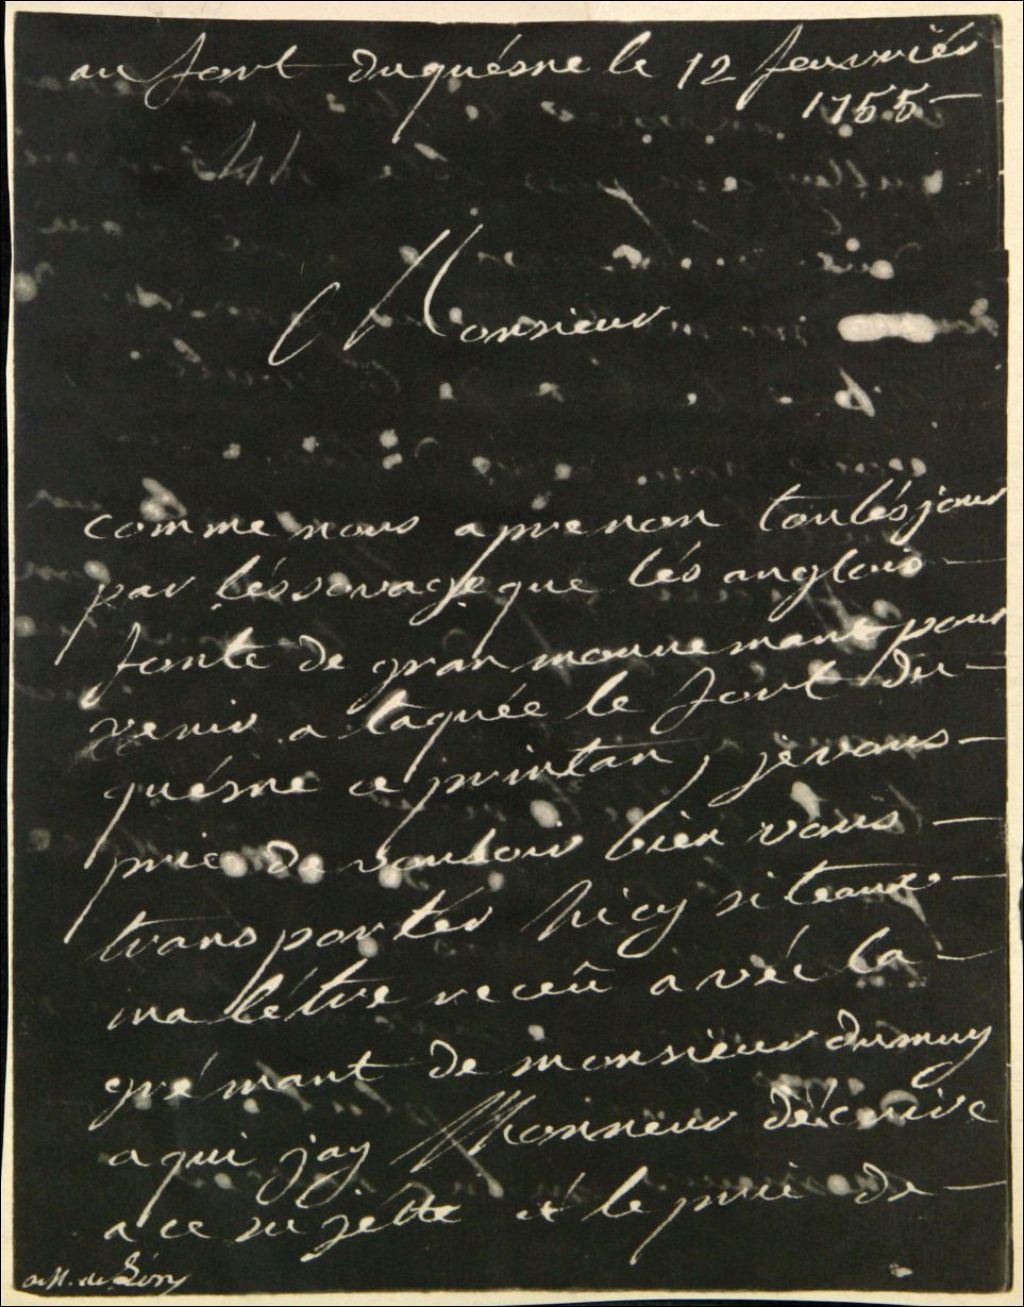 au fort duquésne le 12 feuvriér
1755
Monsieur
comme nous aprenon toulésjour
par léssovage que lés anglois
fonte de gran mouvemant pour
venir ataquée le fort du
quésne ce printan, je vous
prie de vouloir bien vous
transporter hicy siteau
ma létre receû avéc la
grémant de monsieur dumuy
a qui jay Monsieur décrive
a ce sujétte et le prie de
a M. de Léry